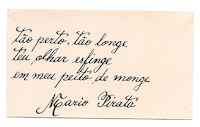 tão perto, tão longe
teu olhar esfinge
em meu peito de monge
Mario Pirata